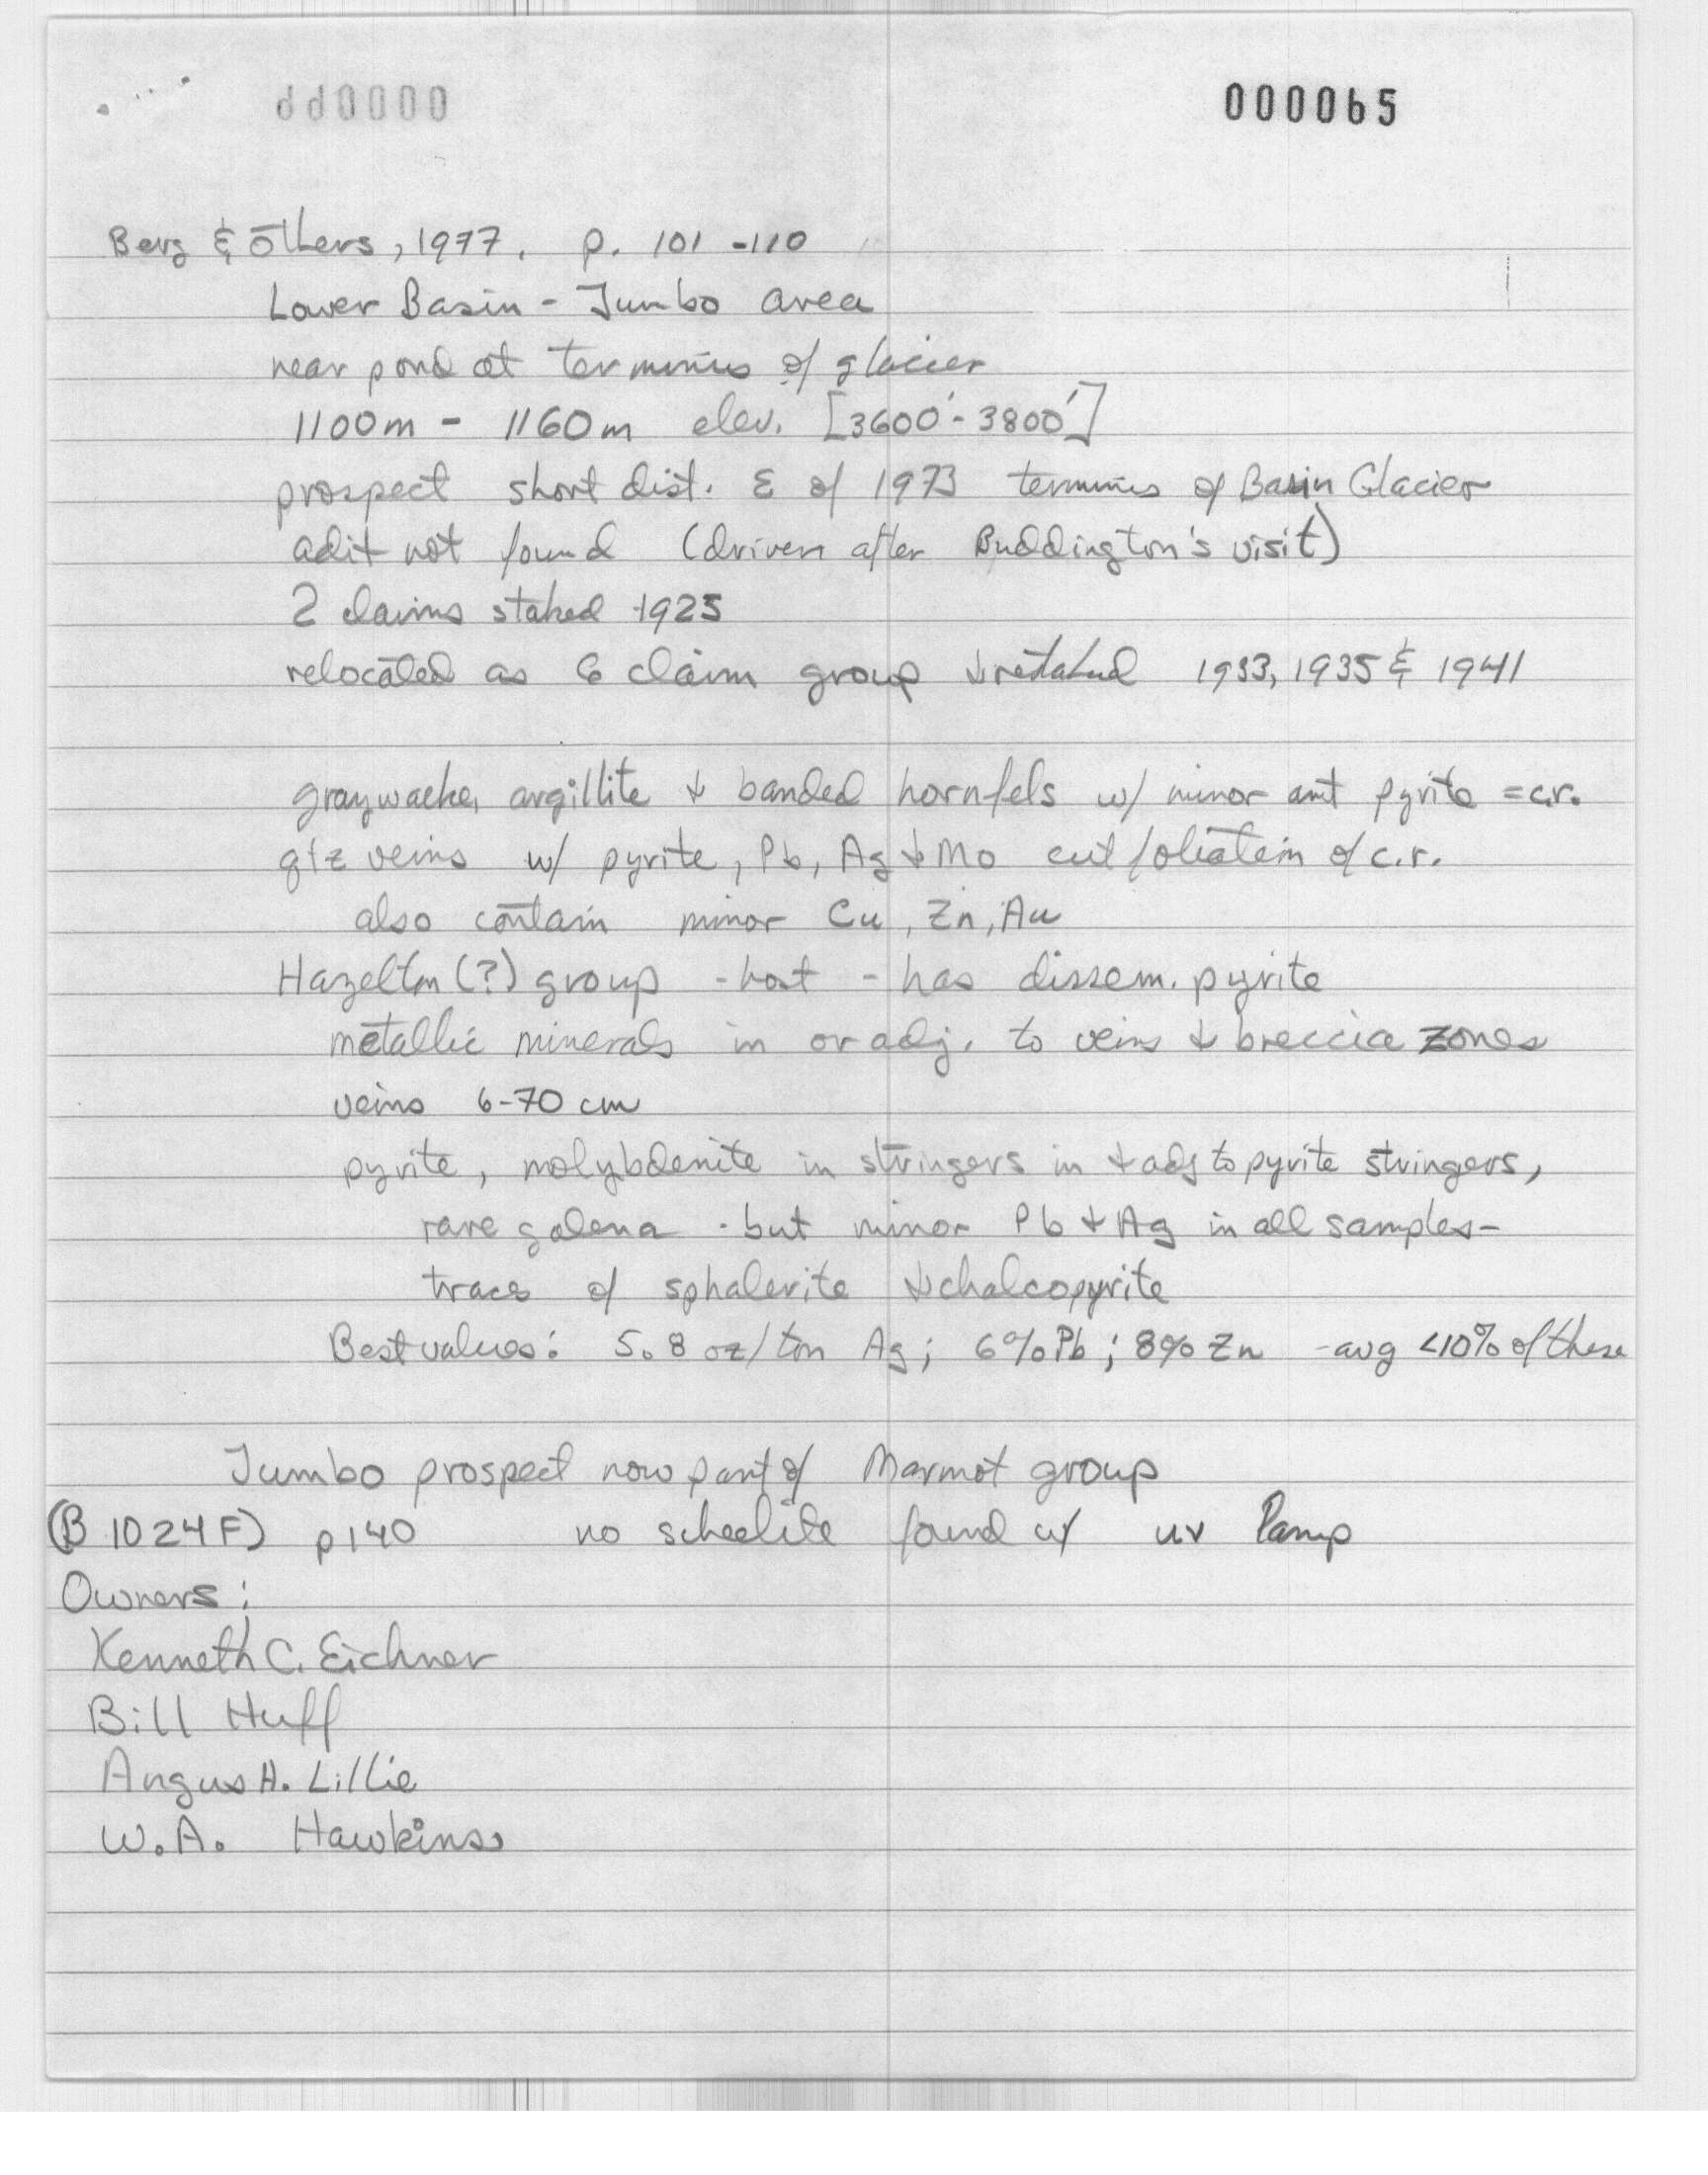 000065
Berg & others, 1977. p. 101-110
Lower Basin - Jumbo area
near pond at terminus of glacier
1100m - 1160m elev. [3600'-3800']
prospect short dist. E of 1973 terminus of Basin Glacier
adit not found (driven after Buddington's visit)
2 claims staked 1925
relocated as 6 claim group & restaked 1933, 1935 & 1941
graywacke, argillite & banded hornfels w/ minor amt pyrite = c.r.
qtz veins w/ pyrite, Pb, Ag & Mo cut foliation of c.r.
also contain minor Cu, Zn, Au
Hazelton (?) group - host - has dissem. pyrite
metallic minerals in or adj. to veins & breccia zones
veins 6-70 cm
pyrite, molybdenite in stringers in & adj to pyrite stringers,
rare galena - but minor Pb & Ag in all samples -
traces of sphalerite & chalcopyrite
Best values: 5.8 oz/ton Ag; 6% Pb; 8% Zn - avg <10% of these
Jumbo prospect now part of Marmot group
(B 1024F) p140 no scheelite found w/ uv lamp
Owners:
Kenneth C. Eichner
Bill Huff
Angus H. Lillie
W.A. Hawkins